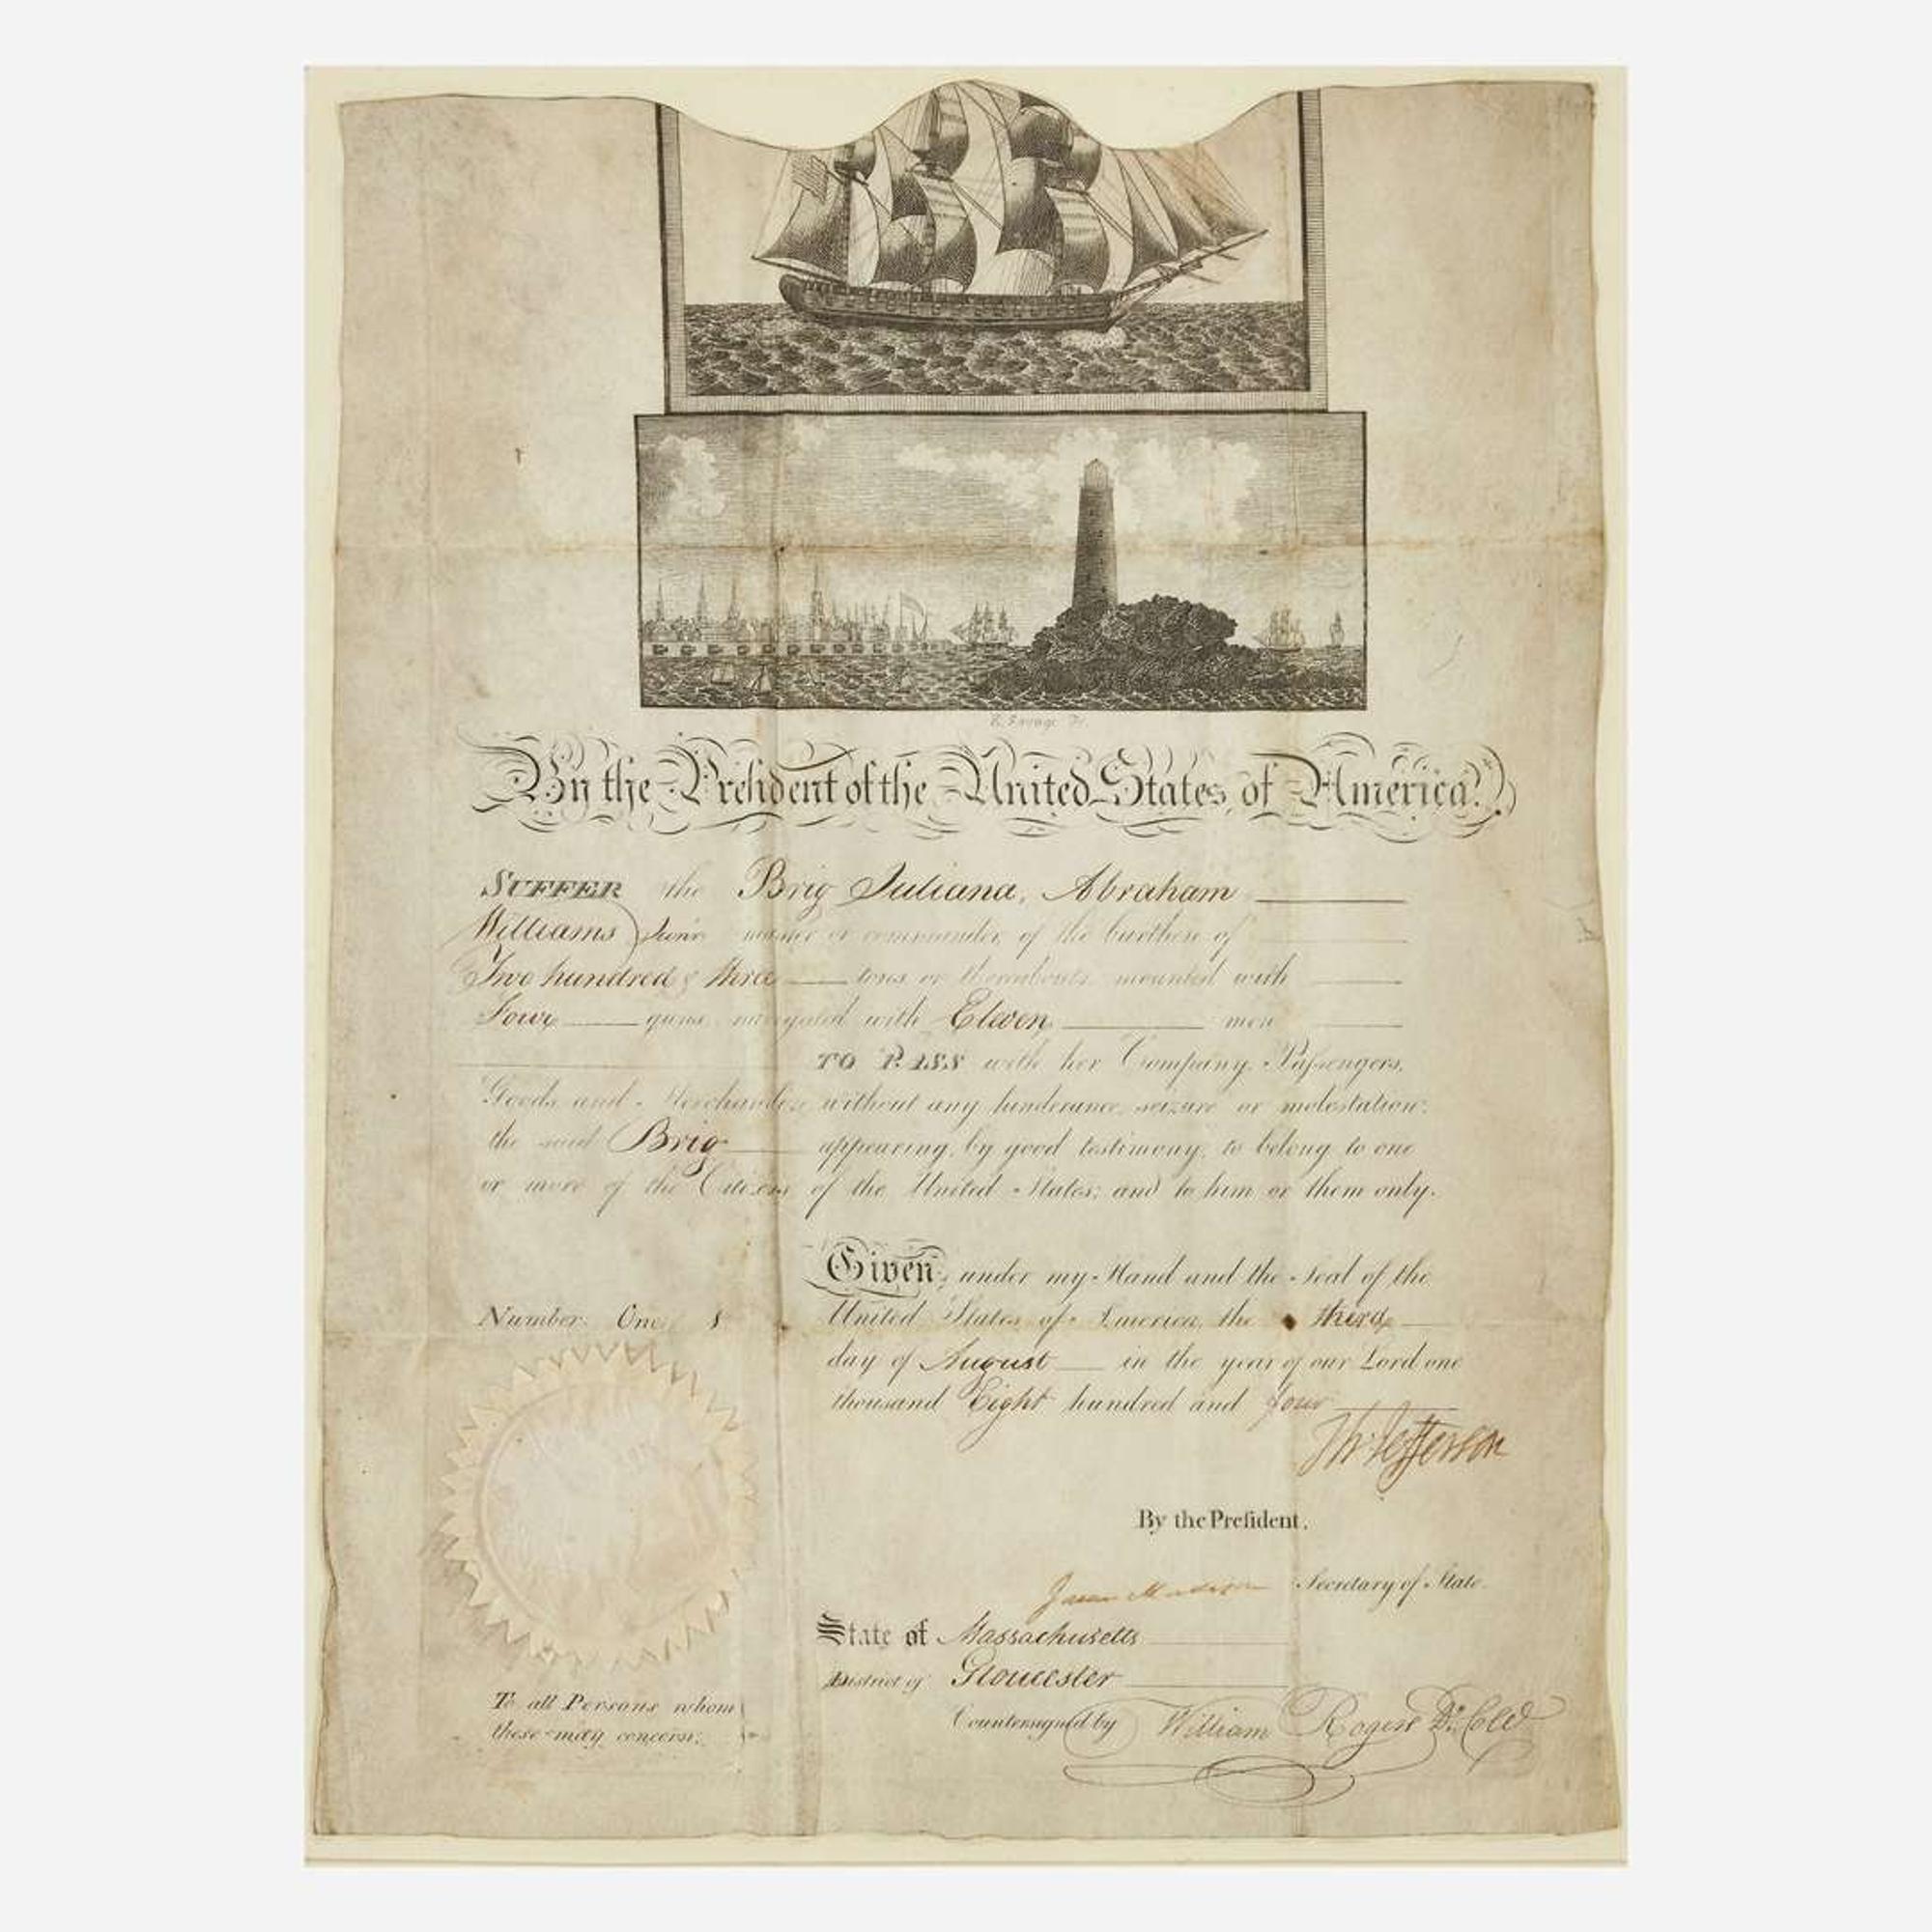 E. Savage Fc.
By the Preſident of the United States of America.
SUFFER the Brig Juliana, Abraham
Williams Junr master or commander, of the burthen of
Two hundred & three tons or thereabouts mounted with
Four guns, navigated with Eleven men
TO PASS with her Company, Paſsengers,
Goods and Merchandize without any hinderance, seizure or molestation:
the said Brig appearing by good testimony, to belong to one
or more of the Citizens of the United States; and to him or them only.
Given, under my Hand and the Seal of the
Number One United States of America, the third
day of August in the year of our Lord one
thousand Eight hundred and four
Th: Jefferson
By the Preſident.
James Madison Secretary of State.
State of Massachusetts
District of Gloucester
To all Persons whom
these may concern:
Countersigned by William